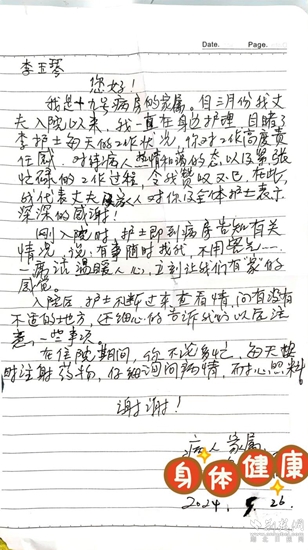 Date.    Page.
李玉琴
您好!
我是十九号病房的家属。自三月份我丈
夫入院以来,我一直在身边护理,目睹了
李护士每天的工作状况,你对工作高度责
任感,对待病人热情和蔼的态,以及紧张
忙碌的工作过程,令我赞叹不已,在此,
我代表丈夫及家人对你及全体护士表示
深深的感谢!
刚入院时,护士即到病房告知有关
情况,说:有事随时找我,不用客气……
一席话温暖人心,立刻让我们有“家”的
感觉。
入院后,护士不断过来查看病情,问有没有
不适的地方,还细心的告诉我们以后注
意一些事项。
在住院期间,你不论多忙,每天按
时注射药物,仔细询问病情,耐心照料
谢谢!
病人家属
身体健康
2024. 26.